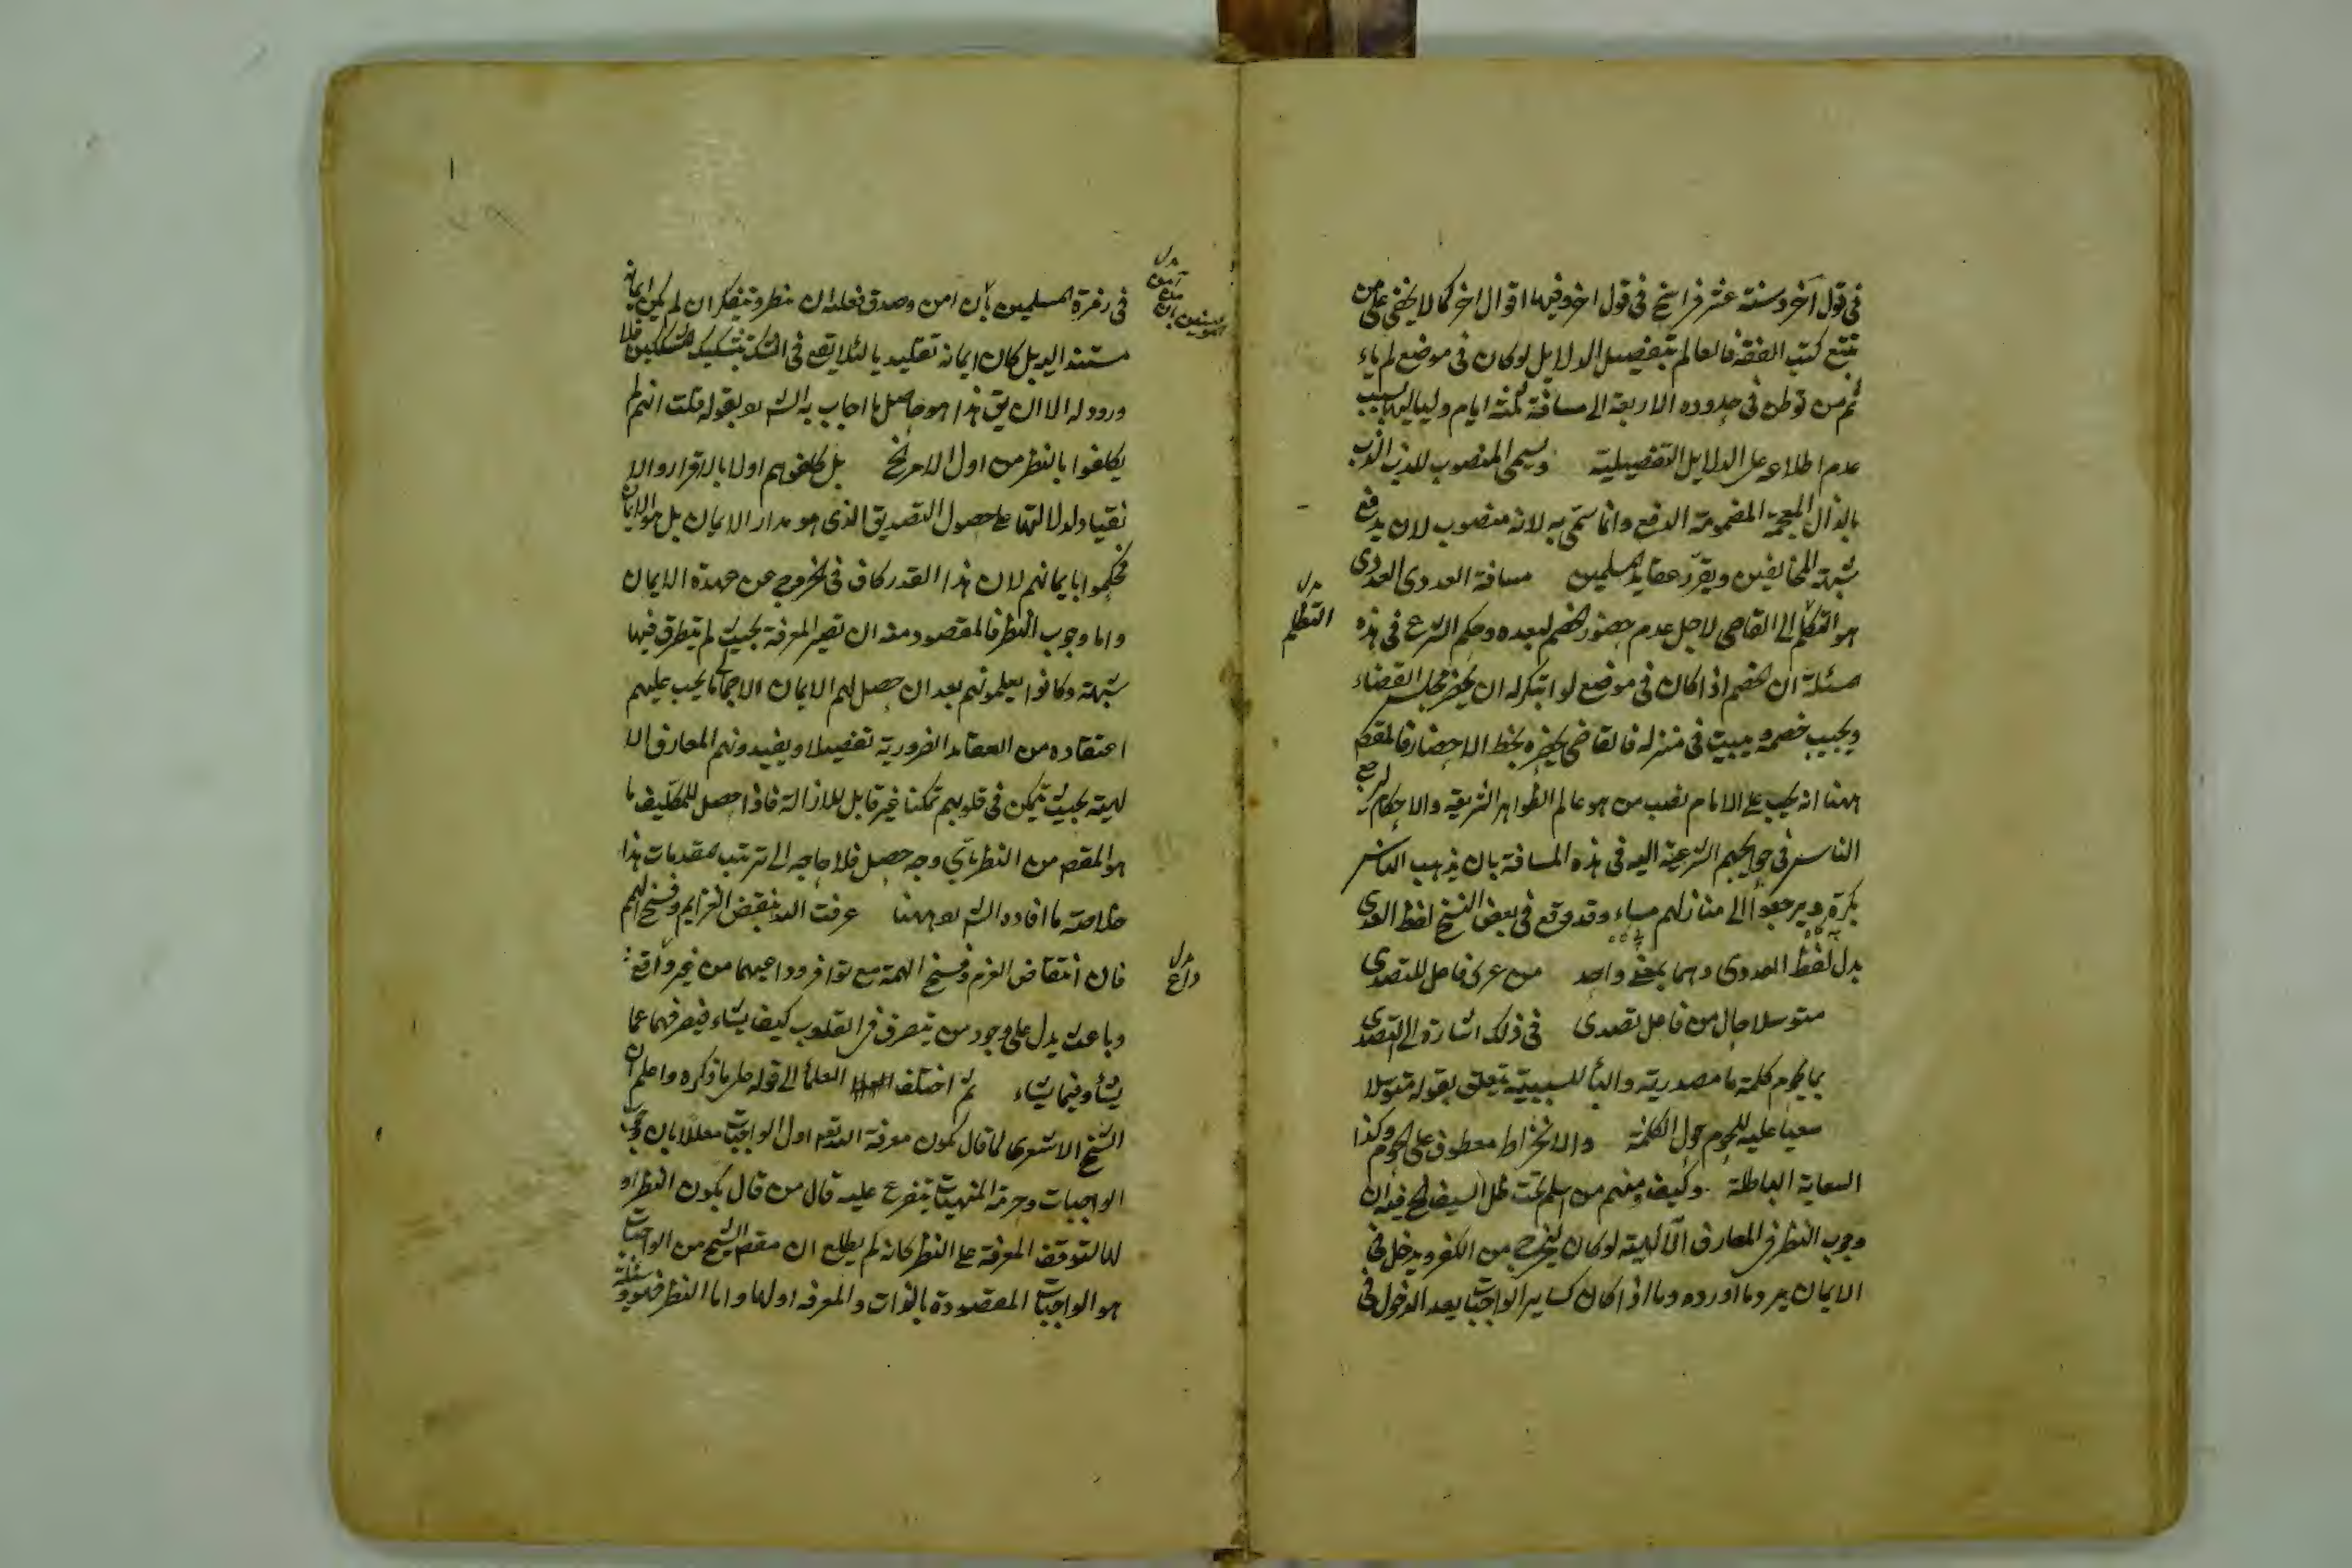 فى قول آخر وستة عشر فراسخ فى قول اخر وفيها اقوال اخر كما لا يخفى على من
تتبع كتب الفقه فالعالم بتفصيل الدلايل لو كان فى موضع لم ياء
ثم من توطن فى حدوده الاربعة الى مسافة ثلثة ايام ولياليها بسبب
عدم اطلاعه على الدلايل التفصيلية ويسمى المنصوب للذب الذب
بالذال المعجمة المضمومة الدفع وانما سمّى به لانه منصوب لان يدفع
شبهة المخالفين ويقرّر عقايد المسلمين مسافة العدوى العدوى
هو التكلم الى القاضى لاجل عدم حضور الخصم لبعده وحكم الشرع فى هذه
التظلم
مسئلة ان الخصم اذا كان فى موضع لو ابتكر له ان يحضر مجلس القضاء
ويجيب خصمه ويبيت فى منزله فالقاضى يحضره بخط الاحضار فالمقصد
ههنا انه يجب على الامام نصب من هو عالم الظواهر الشريعة والاحكام ليرجع
الناس فى حوايجهم الشرعية اليه فى هذه المسافة بان يذهب الناس
بكرة ويرجعوا الى منازلهم مساء وقد وقع فى بعض النسخ لفظ العدى
بدل لفظ العدوى وهما بمعنى واحد من عرى فاعل للتصدى
متوسلا حال من فاعل تصدى فى ذلك اشارة الى التصدى
بما يحوم كلمة ما مصدرية والبأ للسببية يتعلق بقوله متوسلا
سعيا عليه للحوم حول الكلمة والانخراط معطوف على الحوم وكذا
السعاية الباطلة وكيف ومنهم من اسلم تحت ظل السيف الخ فيه ان
وجوب النظر فى المعارف الآلهية لو كان ليخرج من الكفر ويدخل فى
الايمان يرد ما اورده وما اذا كان كساير الواجبات بعد الدخول فى
فى زمرة المسلمين بان امن وصدق فعليه ان ينظر ويتفكر ان لم يكن ايمانه
مستند اليه بل كان ايمانه تقليديا لئلا يقع فى الشك بتشكيك المشككين فلا
ورود له الا ان يق هذا هو حاصل ما اجاب به الش ره بقوله قلت انهم لم
يكلفوا بالنظر من اول الامر الخ بل كلفوهم اولا بالاقرار والا
نقياد ولدلالتهما على حصول التصديق الذى هو مدار الايمان بل هو الايمان
فحكموا بايمانهم لان هذا القدر كاف فى الخروج عن عهدة الايمان
واما وجوب النظر فالمقصود منه ان تصير المعرفة بحيث لم يتطرق فيها
شبهة وكانوا يعلمونهم بعد ان حصل لهم الايمان الاجمالى ما يجب عليهم
اعتقاده من العقايد الضرورية تفصيلا ويفيدونهم المعارف الا
لهية بحيث يتمكن فى قلوبهم تمكنا غير قابل للازالة فاذا حصل للمكلّف ما
هو المقصد من النظر بأىّ وجه حصل فلا حاجه الى ترتيب مقدمات هذا
خلاصة ما افاده الش ره ههنا عرفت الله بنقض العزايم وفسخ الهمم
فان انتقاض العزم وفسخ الهمة مع توافر دواعيهما من غير دافع
داع
وباعث يدل على وجود من يتصرف فى القلوب كيف يشاء فيصرفها عما
يشأ وفيما يشاء ثم اختلف العلمأ الى قوله على ما ذكره واعلم ان
الشيخ الاشعرى لما قال بكون معرفة الله تعه اول الواجبات معلّلا بان وجوب
الواجبات وحرمة المنهيات يتفرع عليه قال من قال بكون النظر او
لها لتوقف المعرفة على النظر كانه لم يطلع ان مقصد الشيخ من الواجبات
هو الواجبات المقصودة بالذات والمعرفه اولها واما النظر فهو وسيلة